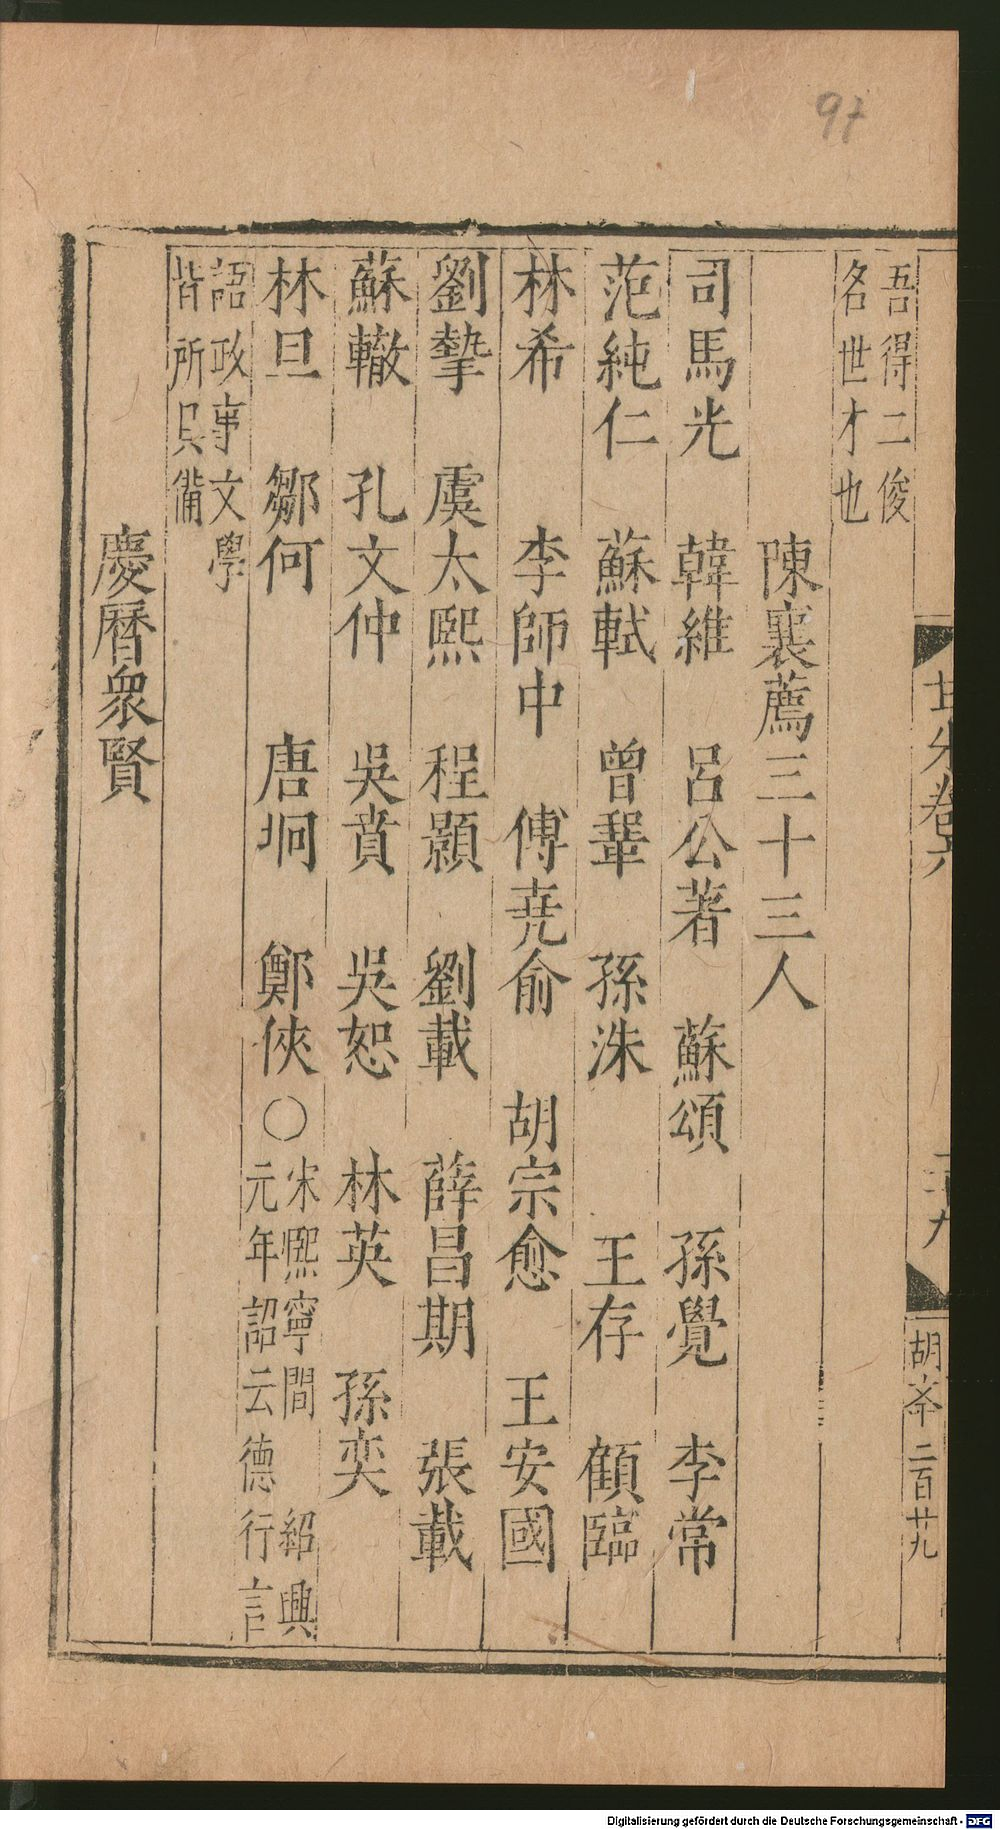 97
吾得二俊
名世才也
陳襄薦三十三人
司馬光 韓維 呂公著 蘇頌 孫覺 李常
范純仁 蘇軾 曾鞏 孫洙 王存 顧臨
林希 李師中 傅堯俞 胡宗愈 王安國
劉摯 虞太熙 程顥 劉載 薛昌期 張載
蘇轍 孔文仲 吳賁 吳恕 林英 孫奕
林旦 鄒何 唐坰 鄭俠〇宋熙寧間 紹興
元年詔云德行言
語政事文學
皆所具備
慶曆衆賢
卷六
二十九
胡岑二百廿九
Digitalisierung gefördert durch die Deutsche Forschungsgemeinschaft - DFG